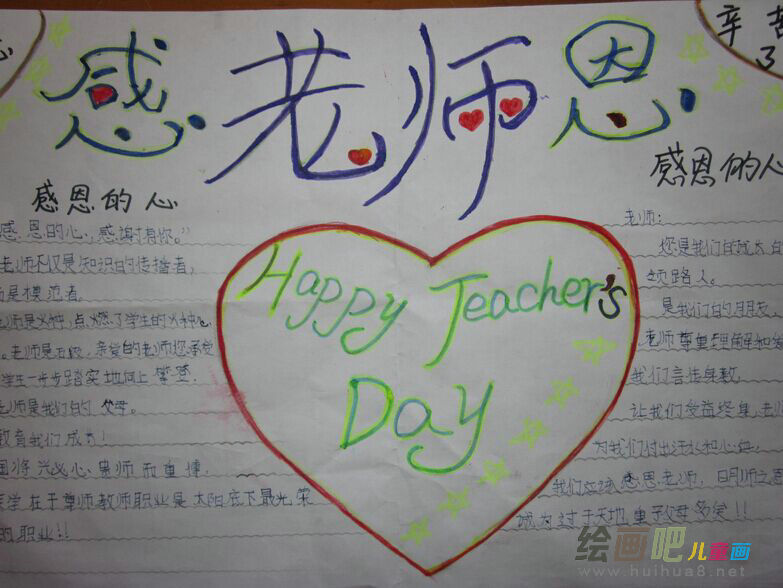 感老师恩
辛苦
了
感恩的心
感恩的心,感谢有你。"
老师不仅是知识的传播者,
是模范者。
老师是火种,点燃了学生的火种
老师是石级,亲爱的老师您承受
学生一步步踏实地向上攀登
老师是我们的父母。
教育我们成才!
国将兴必心贵师而重傅
学在于尊师教师职业是太阳底下最光荣
的职业!!
Happy Teacher's
Day
感恩的心
老师:
您是我们的成长
领路人。
是我们的朋友
老师尊重理解和
我们言传身教
让我们受益终身,老师
为我们付出汗水和心血,
我们应该感恩老师,日月师之恩
成为过于天地重于父母多矣!!
绘画吧儿童画
www.huihua8.net